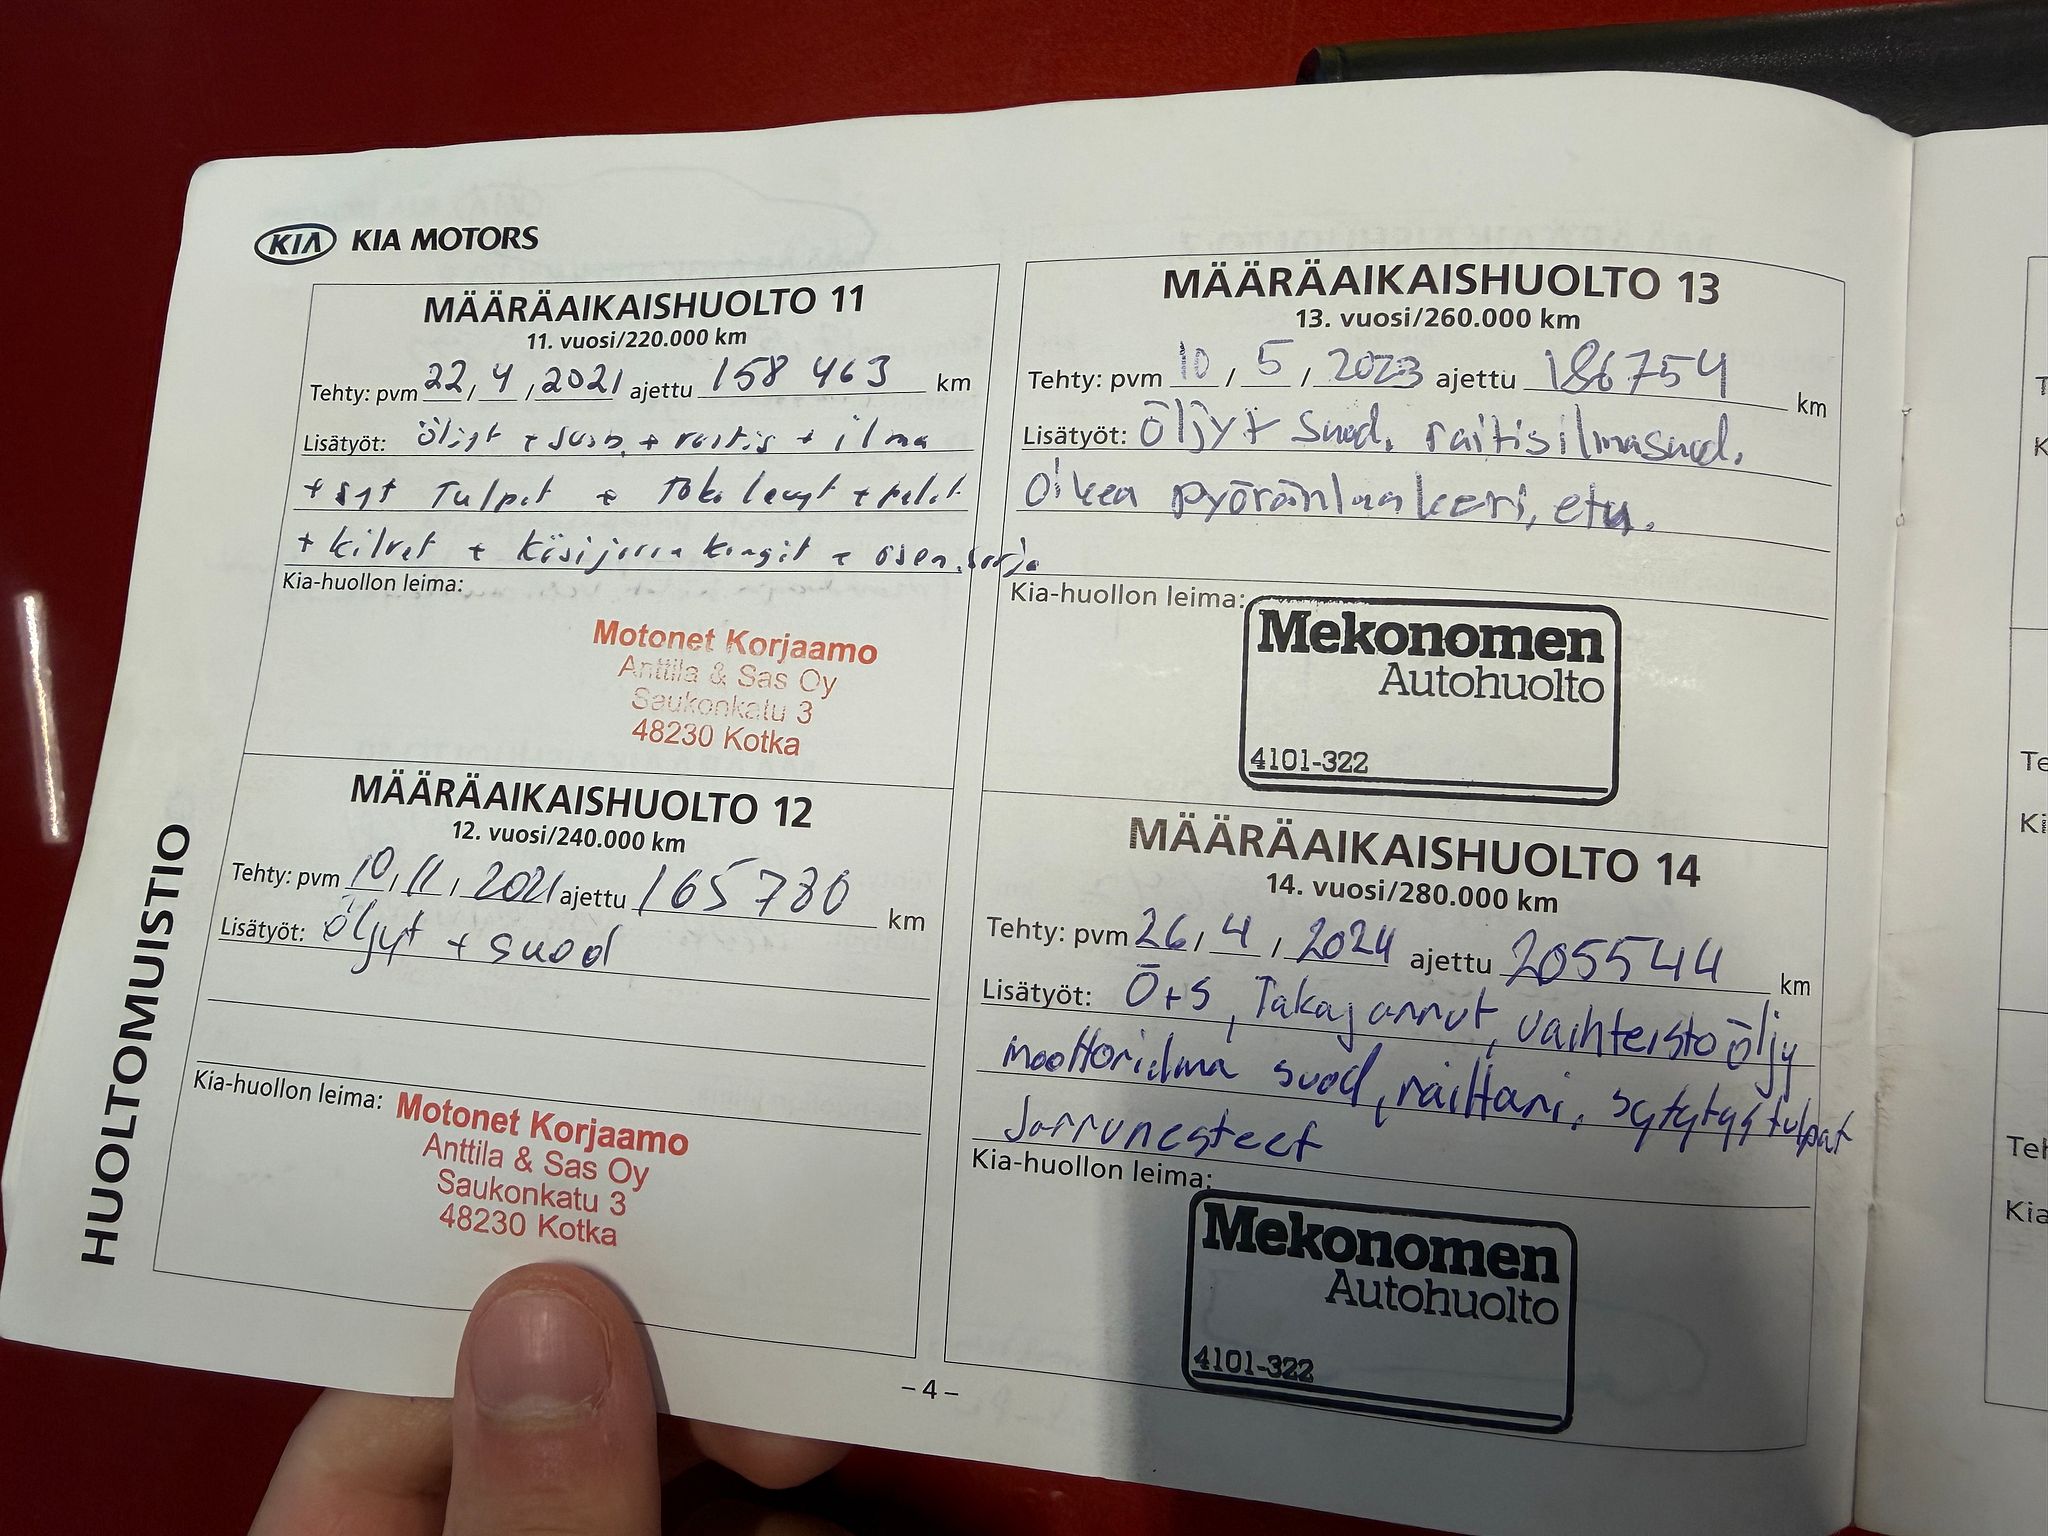 KIA KIA MOTORS
HUOLTOMUISTIO
MÄÄRÄAIKAISHUOLTO 11
11. vuosi/220.000 km
Tehty: pvm 22 / 4 / 2021 ajettu 158 463 km
Lisätyöt: öljyt + suod. + raitis + ilma
+ syt tulpat + taka levyt + palat
+ kilvet + käsijarru kengät + asen. sarja
Kia-huollon leima:
Motonet Korjaamo
Anttila & Sas Oy
Saukonkatu 3
48230 Kotka
MÄÄRÄAIKAISHUOLTO 12
12. vuosi/240.000 km
Tehty: pvm 10 / 11 / 2021 ajettu 165780 km
Lisätyöt: öljyt + suod
Kia-huollon leima:
Motonet Korjaamo
Anttila & Sas Oy
Saukonkatu 3
48230 Kotka
MÄÄRÄAIKAISHUOLTO 13
13. vuosi/260.000 km
Tehty: pvm 10 / 5 / 2023 ajettu 186754 km
Lisätyöt: Öljyt suod. raitisilmasuod.
Oikea pyöränlaakeri, etu.
Kia-huollon leima:
Mekonomen
Autohuolto
4101-322
MÄÄRÄAIKAISHUOLTO 14
14. vuosi/280.000 km
Tehty: pvm 26 / 4 / 2024 ajettu 205544 km
Lisätyöt: Ö+S, Takajarrut, vaihteistoöljy
moottorilma suod, raittari, sytytystulpat
Jarrunesteet
Kia-huollon leima:
Mekonomen
Autohuolto
4101-322
– 4 –